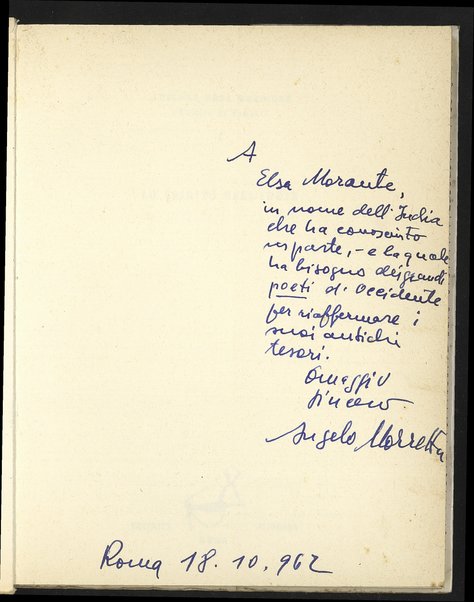 A
Elsa Morante,
in nome dell'India
che ha conosciuto
in parte, - e la quale
ha bisogno dei grandi
poeti d'Occidente
per riaffermare i
suoi antichi
tesori.
Omaggio
sincero
Angelo Morretta
Roma 18.10.962